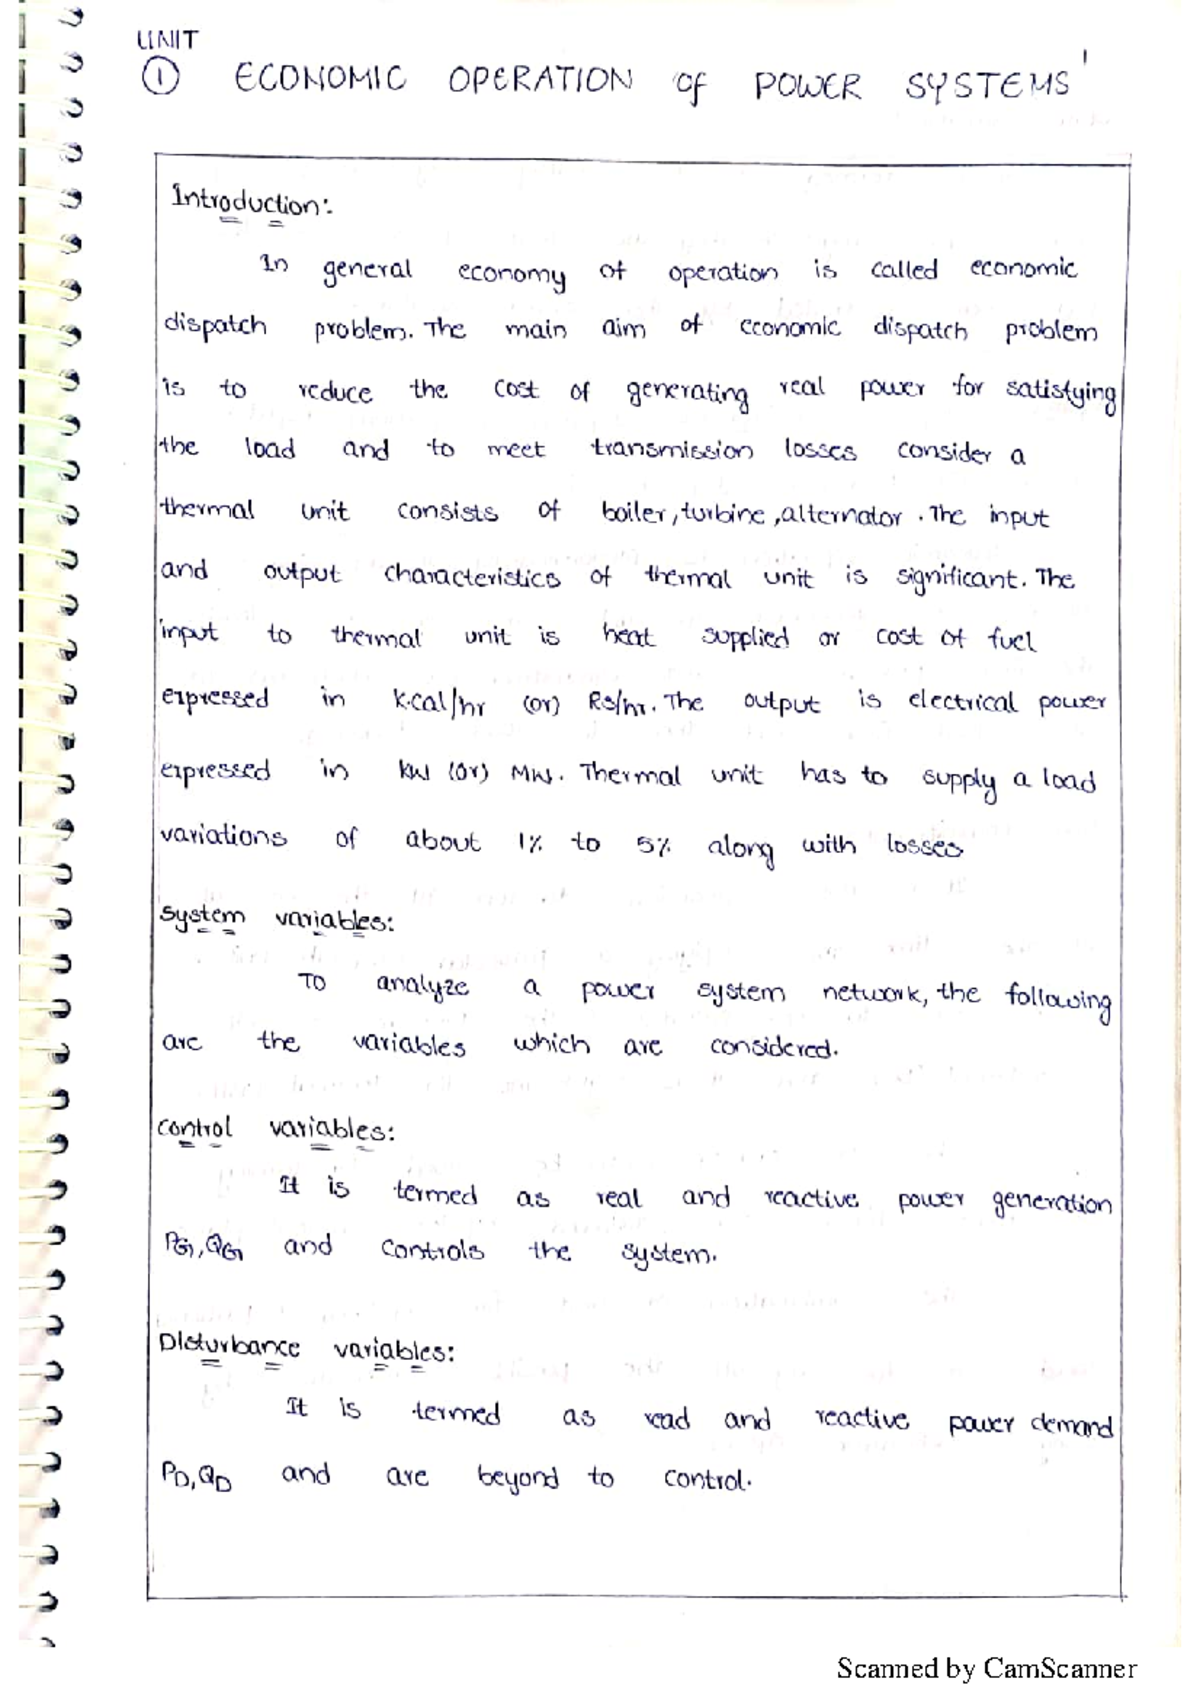 UNIT
① ECONOMIC OPERATION of POWER SYSTEMS
1
Introduction:
In general economy of operation is called economic
dispatch problem. The main aim of economic dispatch problem
is to reduce the cost of generating real power for satisfying
the load and to meet transmission losses consider a
thermal unit consists of boiler, turbine, alternator. The input
and output characteristics of thermal unit is significant. The
input to thermal unit is heat supplied or cost of fuel
expressed in K.cal/hr (or) Rs/hr. The output is electrical power
expressed in kW (Or) MW. Thermal unit has to supply a load
variations of about 1% to 5% along with losses
System variables:
To analyze a power system network, the following
are the variables which are considered.
Control variables:
It is termed as real and reactive power generation
PG, QG and controls the system.
Disturbance variables:
It is termed as read and reactive power demand
PD, QD and are beyond to control.
Scanned by CamScanner